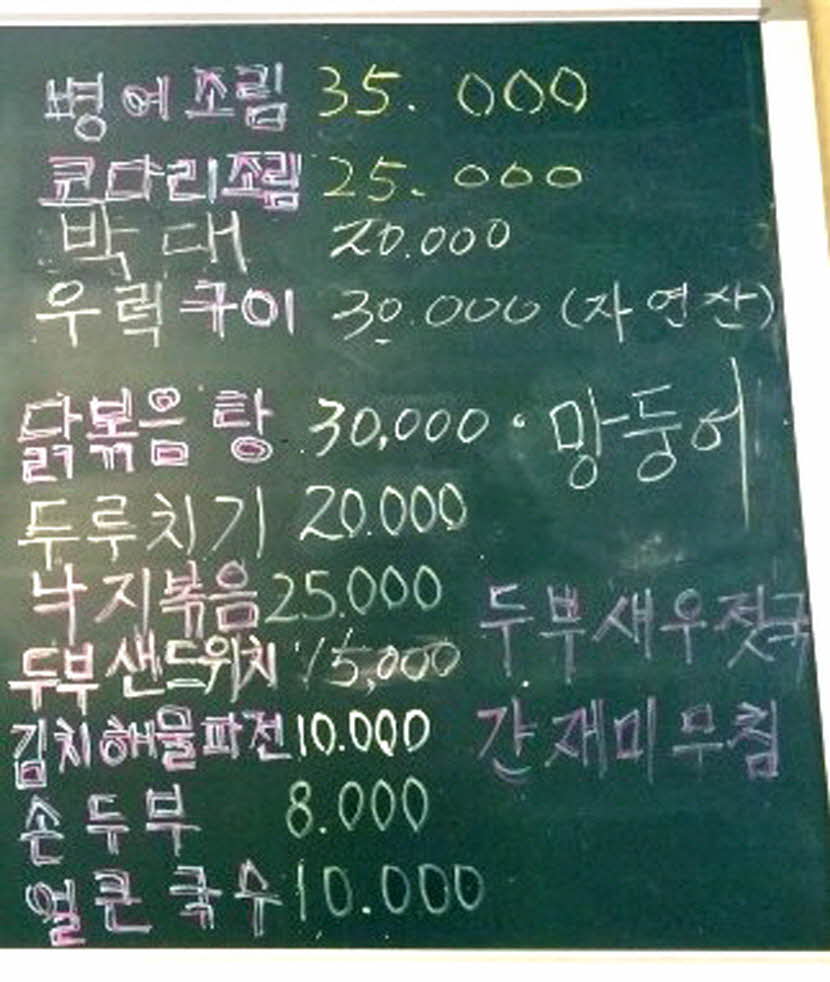 병어조림 35.000
코다리조림 25.000
박대 20.000
우럭구이 30.000 (자연산)
닭볶음탕 30,000 · 망둥어
두루치기 20.000
낙지볶음 25.000
두부샌드위치 15,000
두부새우젓국
김치해물파전 10.000
간재미무침
손두부 8.000
얼큰국수 10.000